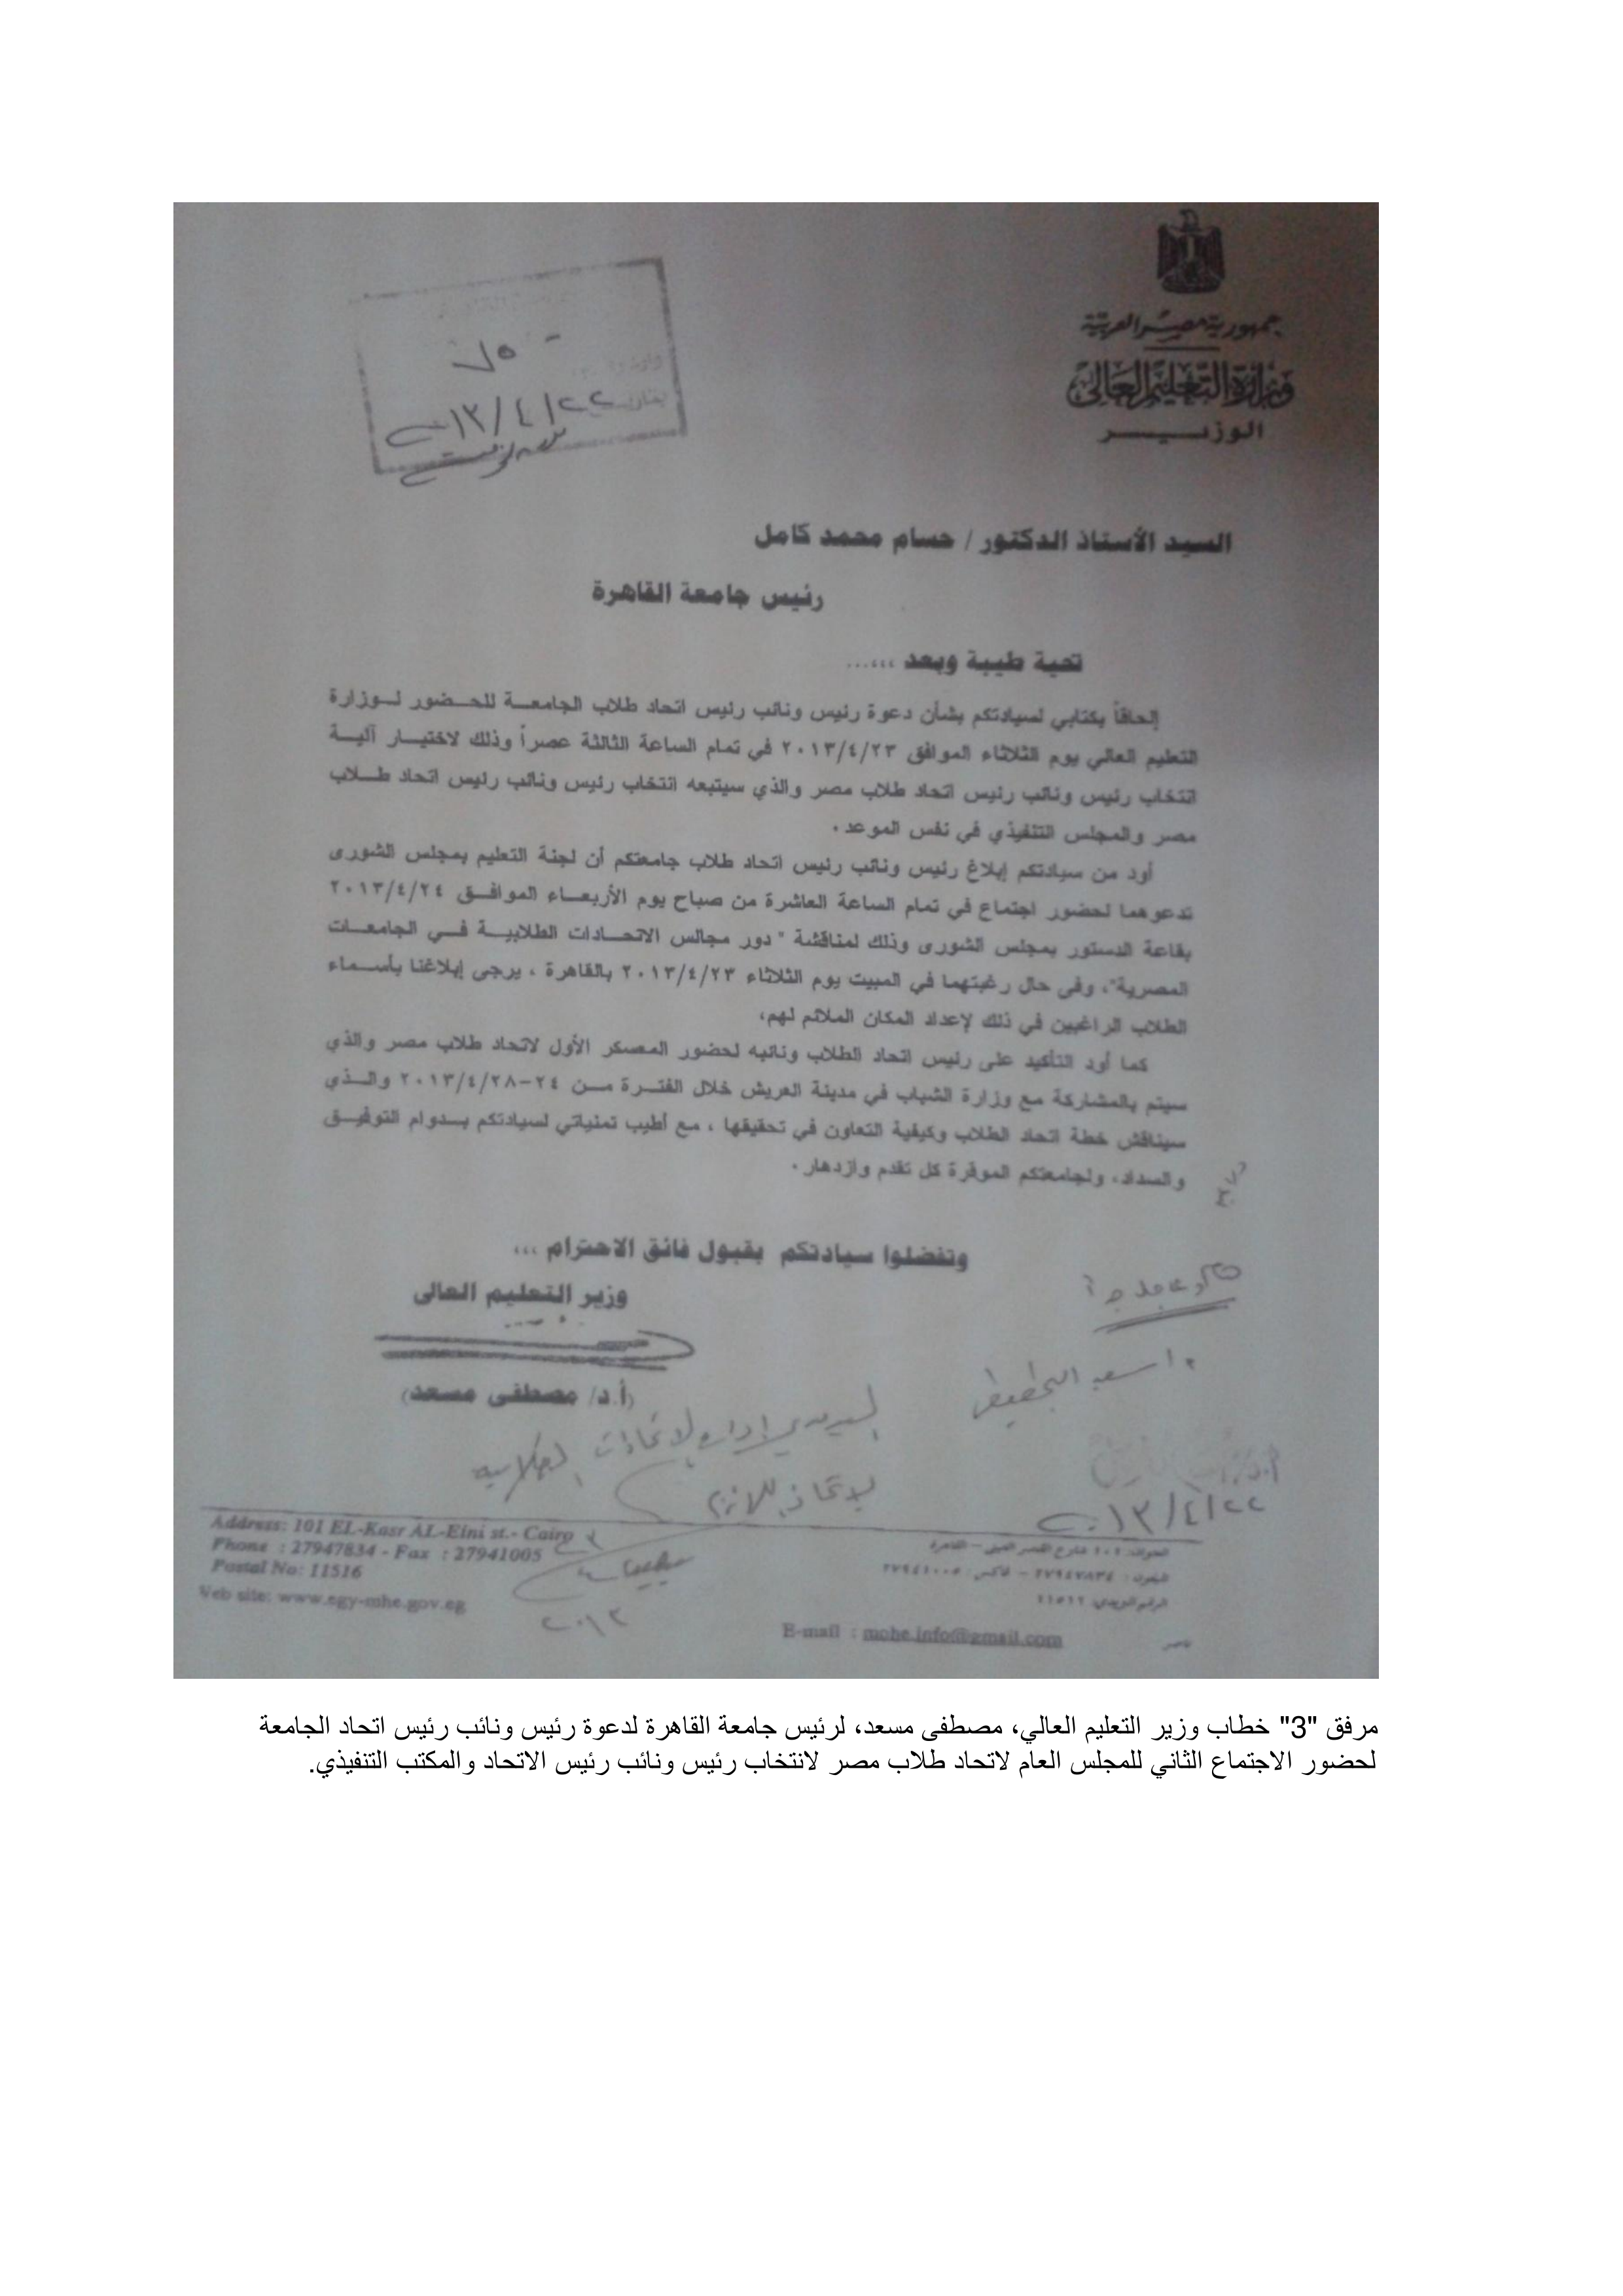 جمهورية مصر العربية
وزارة التعليم العالى
الوزيـــــر
٢٠١٣/٤/٢٢
السيد الأستاذ الدكتور / حسام محمد كامل
رئيس جامعة القاهرة
تحية طيبة وبعد ،،،...
إلحاقاً بكتابي لسيادتكم بشأن دعوة رئيس ونائب رئيس اتحاد طلاب الجامعـــة للحـــضور لـــوزارة
التعليم العالي يوم الثلاثاء الموافق ٢٠١٣/٤/٢٣ في تمام الساعة الثالثة عصراً وذلك لاختيـــار آليـــة
انتخاب رئيس ونائب رئيس اتحاد طلاب مصر والذي سيتبعه انتخاب رئيس ونائب رئيس اتحاد طـــلاب
مصر والمجلس التنفيذي في نفس الموعد .
أود من سيادتكم إبلاغ رئيس ونائب رئيس اتحاد طلاب جامعتكم أن لجنة التعليم بمجلس الشورى
تدعوهما لحضور اجتماع في تمام الساعة العاشرة من صباح يوم الأربعـــاء الموافـــق ٢٠١٣/٤/٢٤
بقاعة الدستور بمجلس الشورى وذلك لمناقشة " دور مجالس الاتحـــادات الطلابيـــة فـــي الجامعـــات
المصرية"، وفى حال رغبتهما في المبيت يوم الثلاثاء ٢٠١٣/٤/٢٣ بالقاهرة ، يرجى إبلاغنا بأســـماء
الطلاب الراغبين في ذلك لإعداد المكان الملائم لهم،
كما أود التأكيد على رئيس اتحاد الطلاب ونائبه لحضور المعسكر الأول لاتحاد طلاب مصر والذي
سيتم بالمشاركة مع وزارة الشباب في مدينة العريش خلال الفتـــرة مـــن ٢٤-٢٠١٣/٤/٢٨ والـــذي
سيناقش خطة اتحاد الطلاب وكيفية التعاون في تحقيقها ، مع أطيب تمنياتي لسيادتكم بـــدوام التوفيـــق
والسداد، ولجامعتكم الموقرة كل تقدم وازدهار .
وتفضلوا سيادتكم بقبول فائق الاحترام ،،،
وزير التعليم العالى
(أ.د/ مصطفى مسعد)
السيد مدير إدارة الاتحادات الطلابية
لاتخاذ اللازم
٢٠١٣/٤/٢٢
Address: 101 EL-Kasr AL-Eini st.- Cairo
Phone : 27947834 - Fax : 27941005
Postal No: 11516
Web site: www.egy-mhe.gov.eg
العنوان: ١٠١ شارع القصر العينى – القاهرة
تليفون : ٢٧٩٤٧٨٣٤ – فاكس : ٢٧٩٤١٠٠٥
الرقم البريدى: ١١٥١٦
E-mail : mohe.info@gmail.com
٢٠١٣
مرفق "3" خطاب وزير التعليم العالي، مصطفى مسعد، لرئيس جامعة القاهرة لدعوة رئيس ونائب رئيس اتحاد الجامعة
لحضور الاجتماع الثاني للمجلس العام لاتحاد طلاب مصر لانتخاب رئيس ونائب رئيس الاتحاد والمكتب التنفيذي.